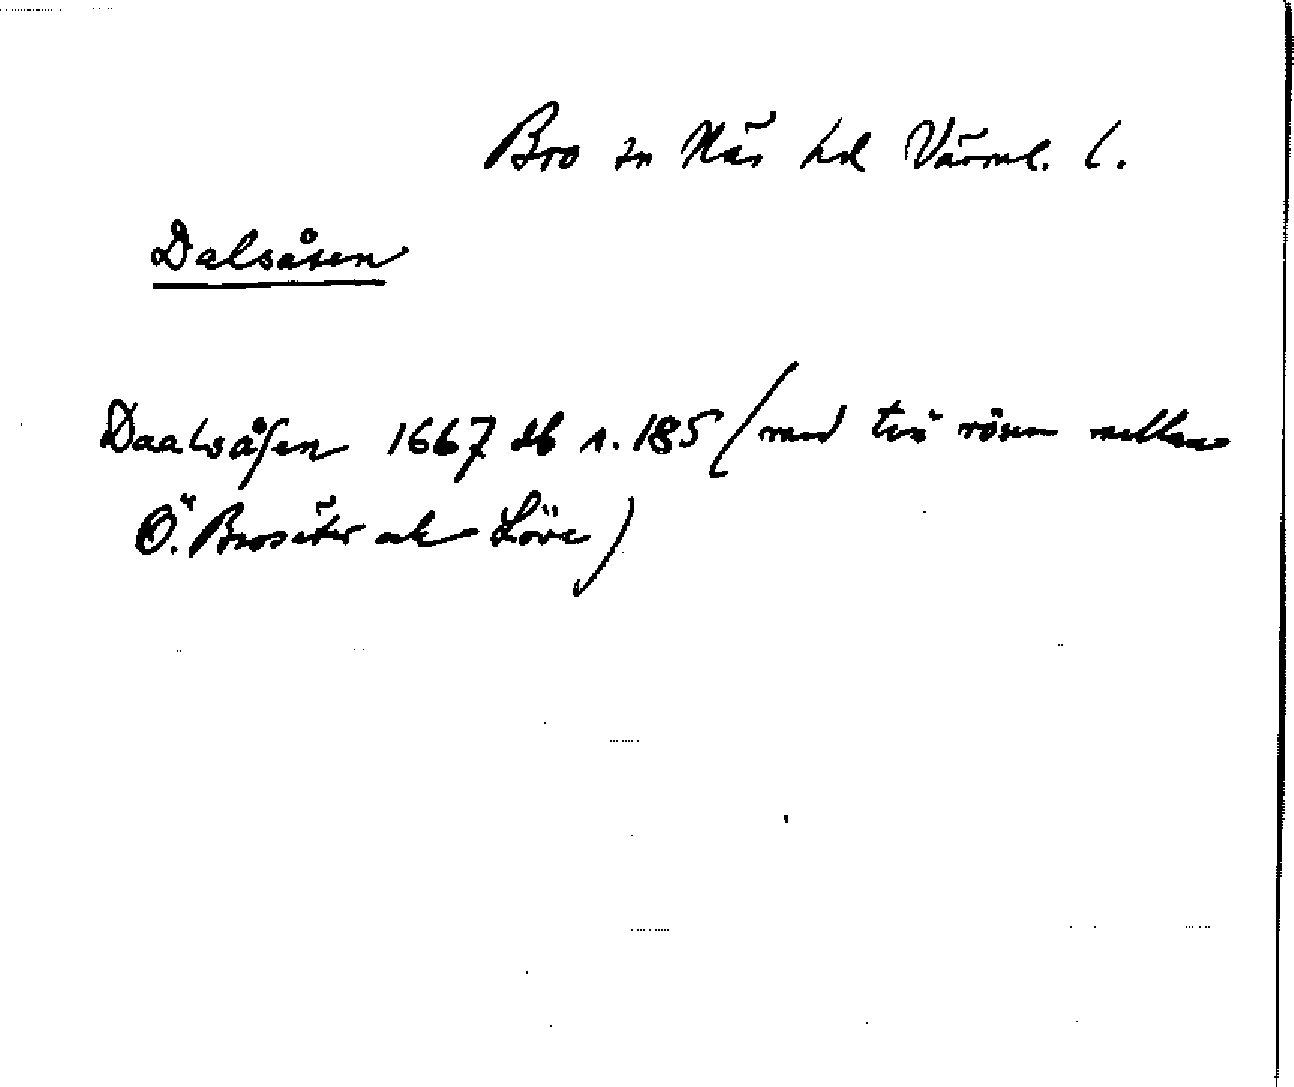 Bro sn Näs hd Värml. l.
Dalsåsen
Daalsåsen 1667 db s. 185 (med rösen mellan
Ö. Brosäter och Löve)